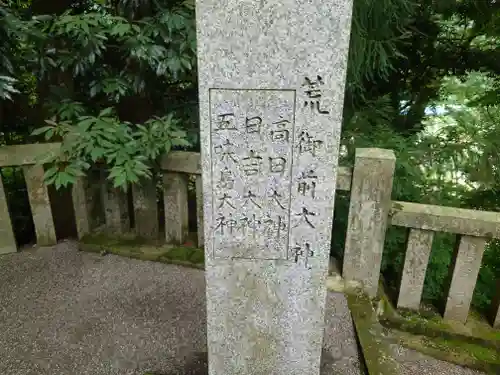 荒御前大神
高日大神
日吉大神
五味島大神